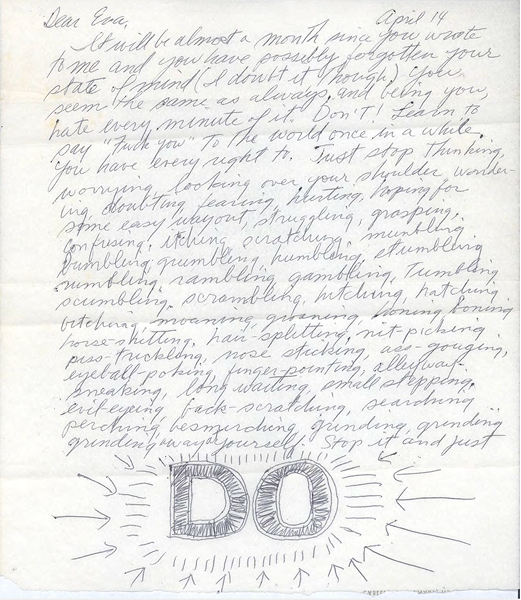 Dear Eva, April 14
It will be almost a month since you wrote
to me and you have possibly forgotten your
state of mind (I doubt it though). You
seem the same as always, and being you,
hate every minute of it. Don't! Learn to
say "Fuck You" to the world once in a while.
You have every right to. Just stop thinking,
worrying, looking over your shoulder, wonder-
ing, doubting, fearing, hurting, hoping for
some easy way out, struggling, grasping,
confusing, itching, scratching, mumbling,
bumbling, grumbling, humbling, stumbling,
numbling, rambling, gambling, tumbling,
scumbling, scrambling, hitching, hatching,
bitching, moaning, groaning, honing, boning,
horse-shitting, hair-splitting, nit-picking,
piss-trickling, nose sticking, ass-gouging,
eyeball-poking, finger-pointing, alleyway-
sneaking, long waiting, small stepping,
evil-eyeing, back-scratching, searching,
perching, besmirching, grinding, grinding
grinding away at yourself. Stop it and just
DO